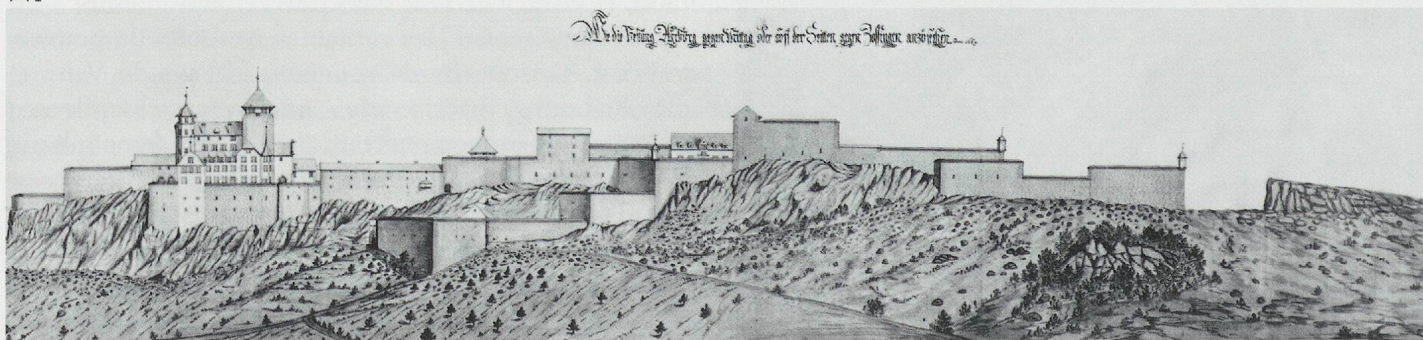 Wie die Vestung Arburg gegen Mitag oder auff der Seiten gegen Zoffingen anzusechen